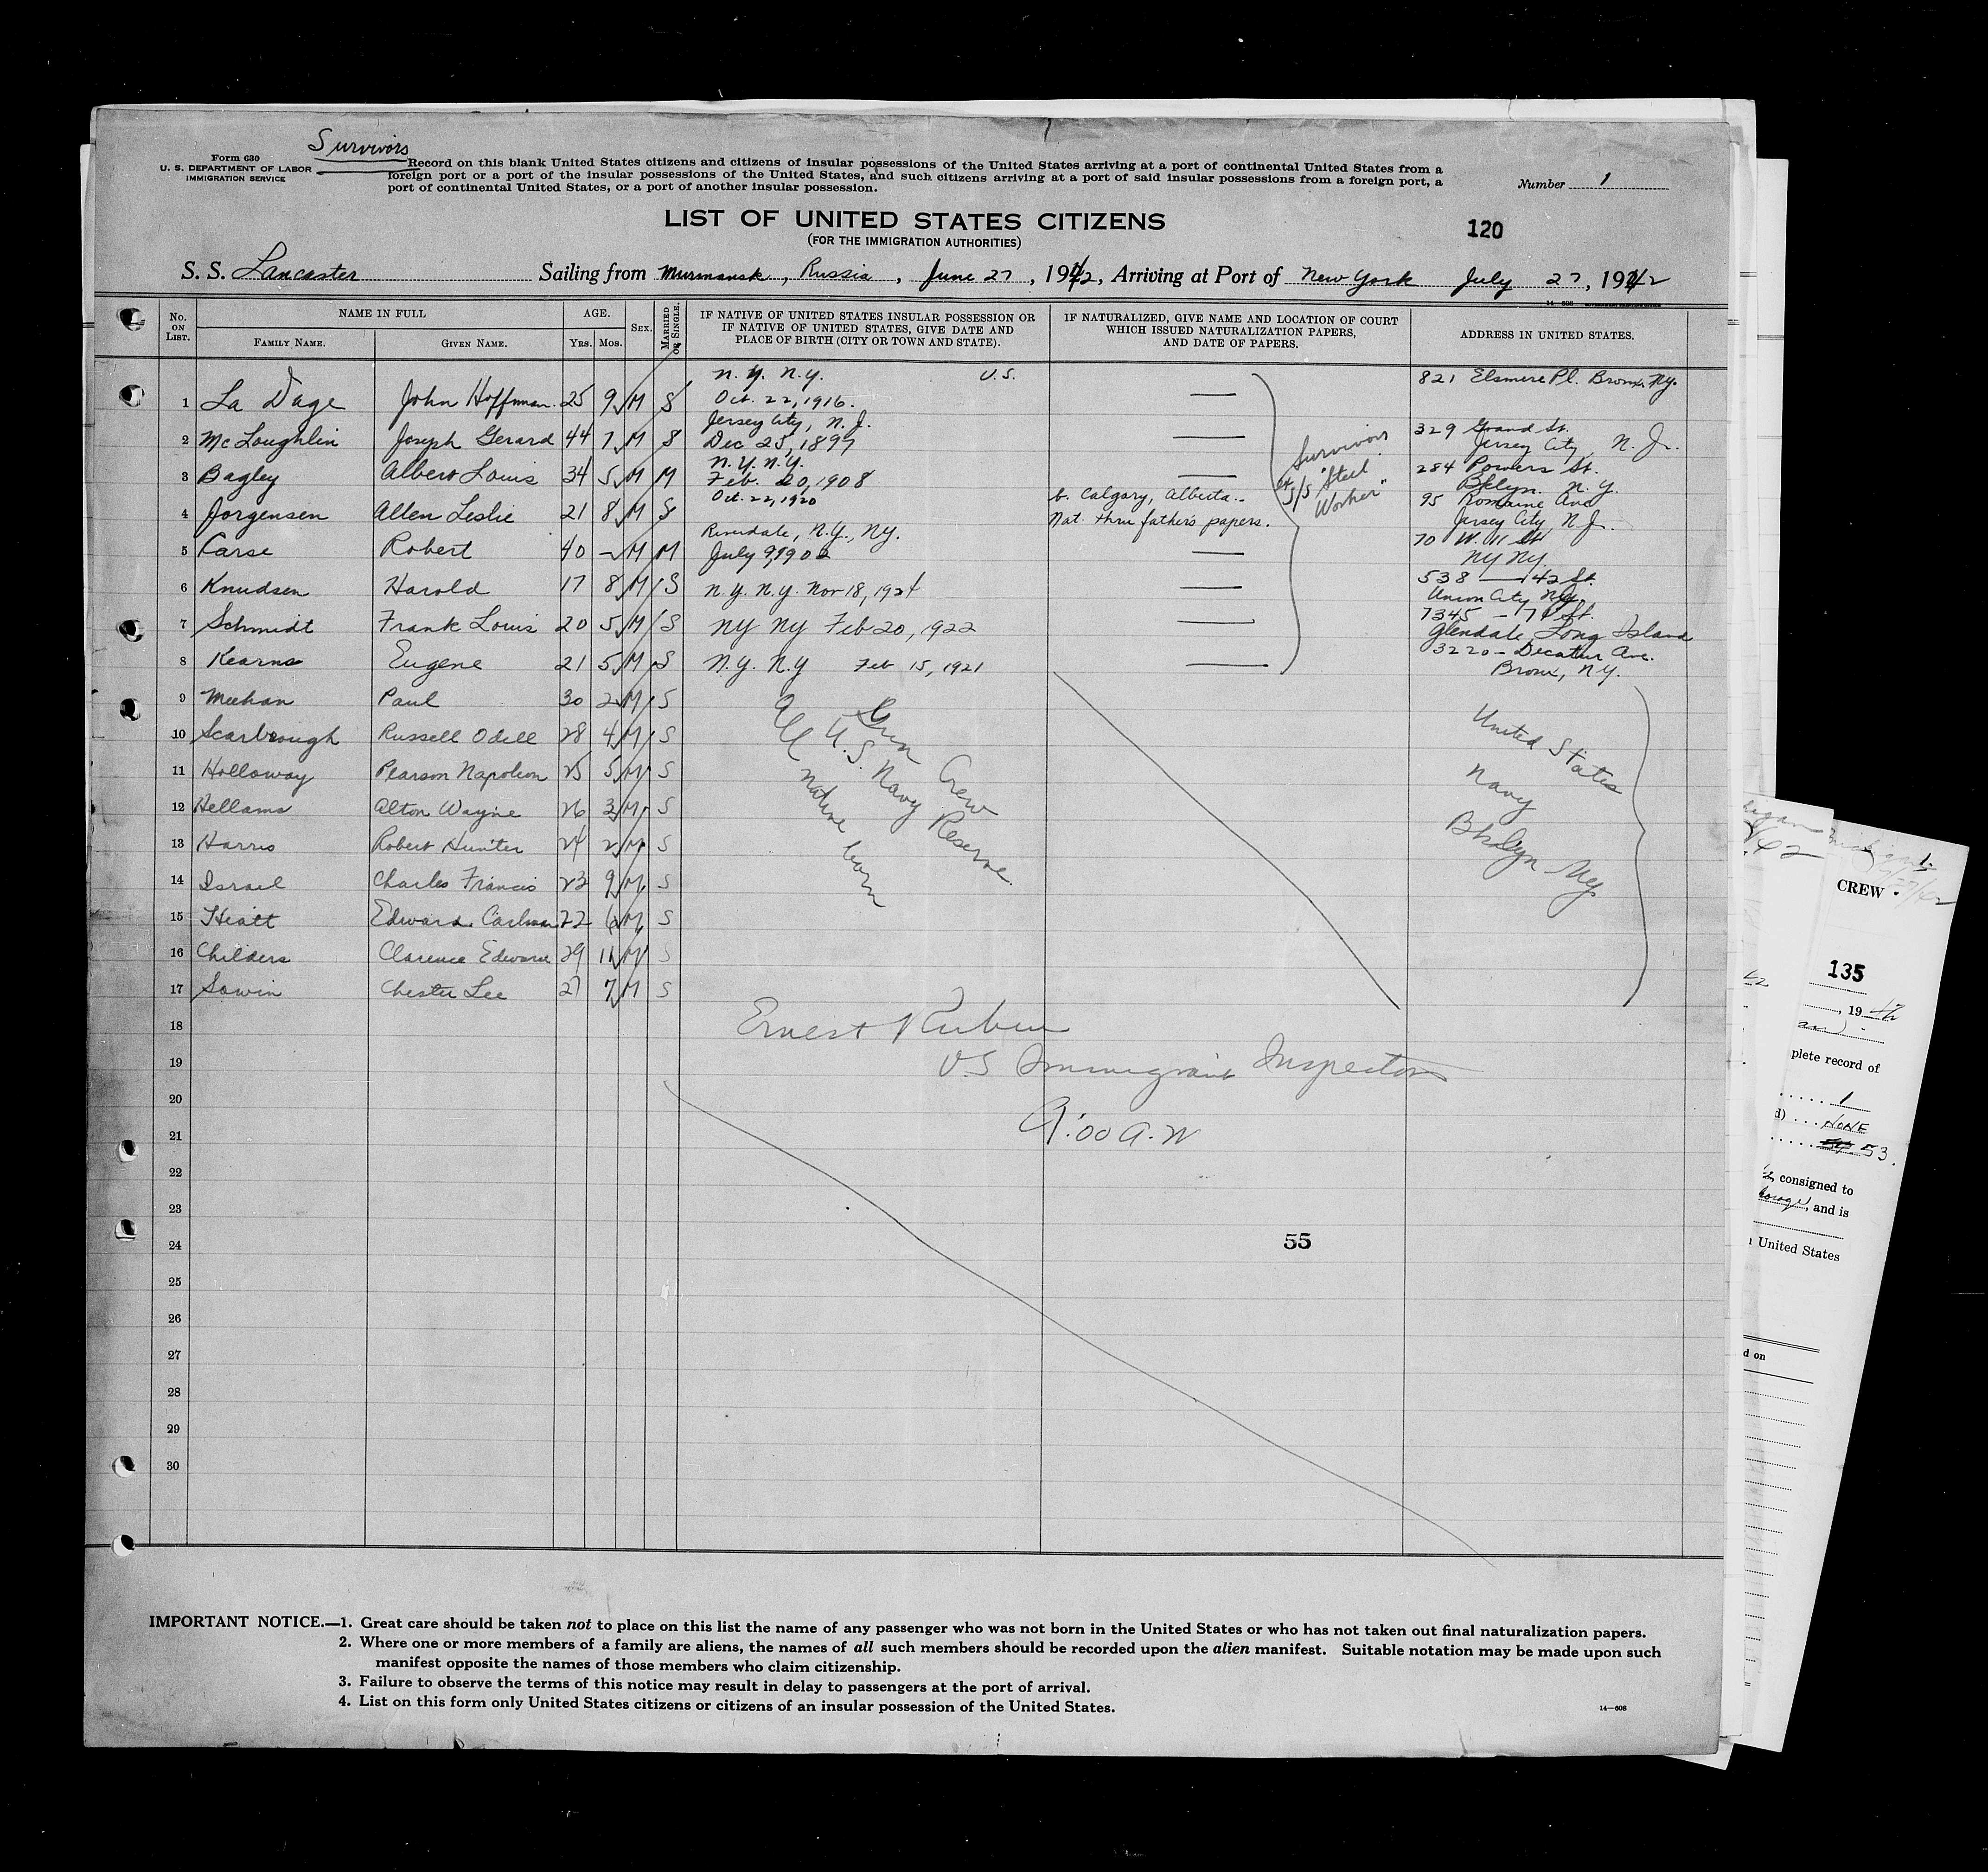 Survivors
Form 630
U. S. DEPARTMENT OF LABOR
IMMIGRATION SERVICE
Record on this blank United States citizens and citizens of insular possessions of the United States arriving at a port of continental United States from a
foreign port or a port of the insular possessions of the United States, and such citizens arriving at a port of said insular possessions from a foreign port, a
port of continental United States, or a port of another insular possession.
Number 1
LIST OF UNITED STATES CITIZENS
(FOR THE IMMIGRATION AUTHORITIES)
120
S. S. Lancaster Sailing from Murmansk, Russia, June 27, 1942, Arriving at Port of New York July 27, 1942
No. ON LIST.
NAME IN FULL
FAMILY NAME.
GIVEN NAME.
AGE.
Yrs. Mos.
SEX.
MARRIED OR SINGLE.
IF NATIVE OF UNITED STATES INSULAR POSSESSION OR
IF NATIVE OF UNITED STATES, GIVE DATE AND
PLACE OF BIRTH (CITY OR TOWN AND STATE).
IF NATURALIZED, GIVE NAME AND LOCATION OF COURT
WHICH ISSUED NATURALIZATION PAPERS,
AND DATE OF PAPERS.
ADDRESS IN UNITED STATES.
1 La Dage John Hoffman 25 9 M S N. Y. N.Y. U.S. Oct. 22, 1916. — 821 Elsmere Pl. Bronx, NY.
2 McLoughlin Joseph Gerard 44 7 M S Jersey City, N. J. Dec 25, 1897 — 329 Grand St. Jersey City, N. J.
3 Bagley Albert Louis 34 5 M M N. Y. N.Y. Feb. 20, 1908 — 284 Powers St. Bklyn. N. Y.
4 Jorgensen Allen Leslie 21 8 M S Oct. 22, 1920 b. Calgary, Alberta. Nat. thru father's papers. 95 Romaine Ave Jersey City N.J.
5 Carse Robert 40 - M M Riverdale, N.Y., NY. July 9, 1902 — 70 W. 11 St NY NY.
6 Knudsen Harold 17 8 M S N. Y. N. Y. Nov 18, 1924 — 538 — 42 St. Union City
7 Schmidt Frank Louis 20 5 M S NY NY Feb 20, 1922 — 7345 - 71 St. Glendale, Long Island
8 Kearns Eugene 21 5 M S N. Y. N.Y Feb 15, 1921 — 3220 - Decatur Ave. Bronx, N.Y.
Survivors
S/S "Steel
Worker"
9 Meehan Paul 30 2 M S
10 Scarbrough Russell Odell 28 4 M S
11 Holloway Pearson Napoleon 25 5 M S
12 Hellams Alton Wayne 26 3 M S
13 Harris Robert Hunter 24 2 M S
14 Israel Charles Francis 23 9 M S
15 Hiatt Edward 22 6 M S
16 Childers Clarence Edward 29 11 M S
17 Sowin Chester Lee 27 7 M S
Gun Crew
All U.S. Navy Reserve.
native born
United States
Navy
Bklyn NY.
18
Ernest Rubin
19
U.S Immigrant Inspector
20
21
9:00 A.M
22
23
24
55
25
26
27
28
29
30
IMPORTANT NOTICE.—1. Great care should be taken not to place on this list the name of any passenger who was not born in the United States or who has not taken out final naturalization papers.
2. Where one or more members of a family are aliens, the names of all such members should be recorded upon the alien manifest. Suitable notation may be made upon such
manifest opposite the names of those members who claim citizenship.
3. Failure to observe the terms of this notice may result in delay to passengers at the port of arrival.
4. List on this form only United States citizens or citizens of an insular possession of the United States.
14—608
CREW
135
, 1942
plete record of
1
d) NONE
53.
consigned to
, and is
United States
d on